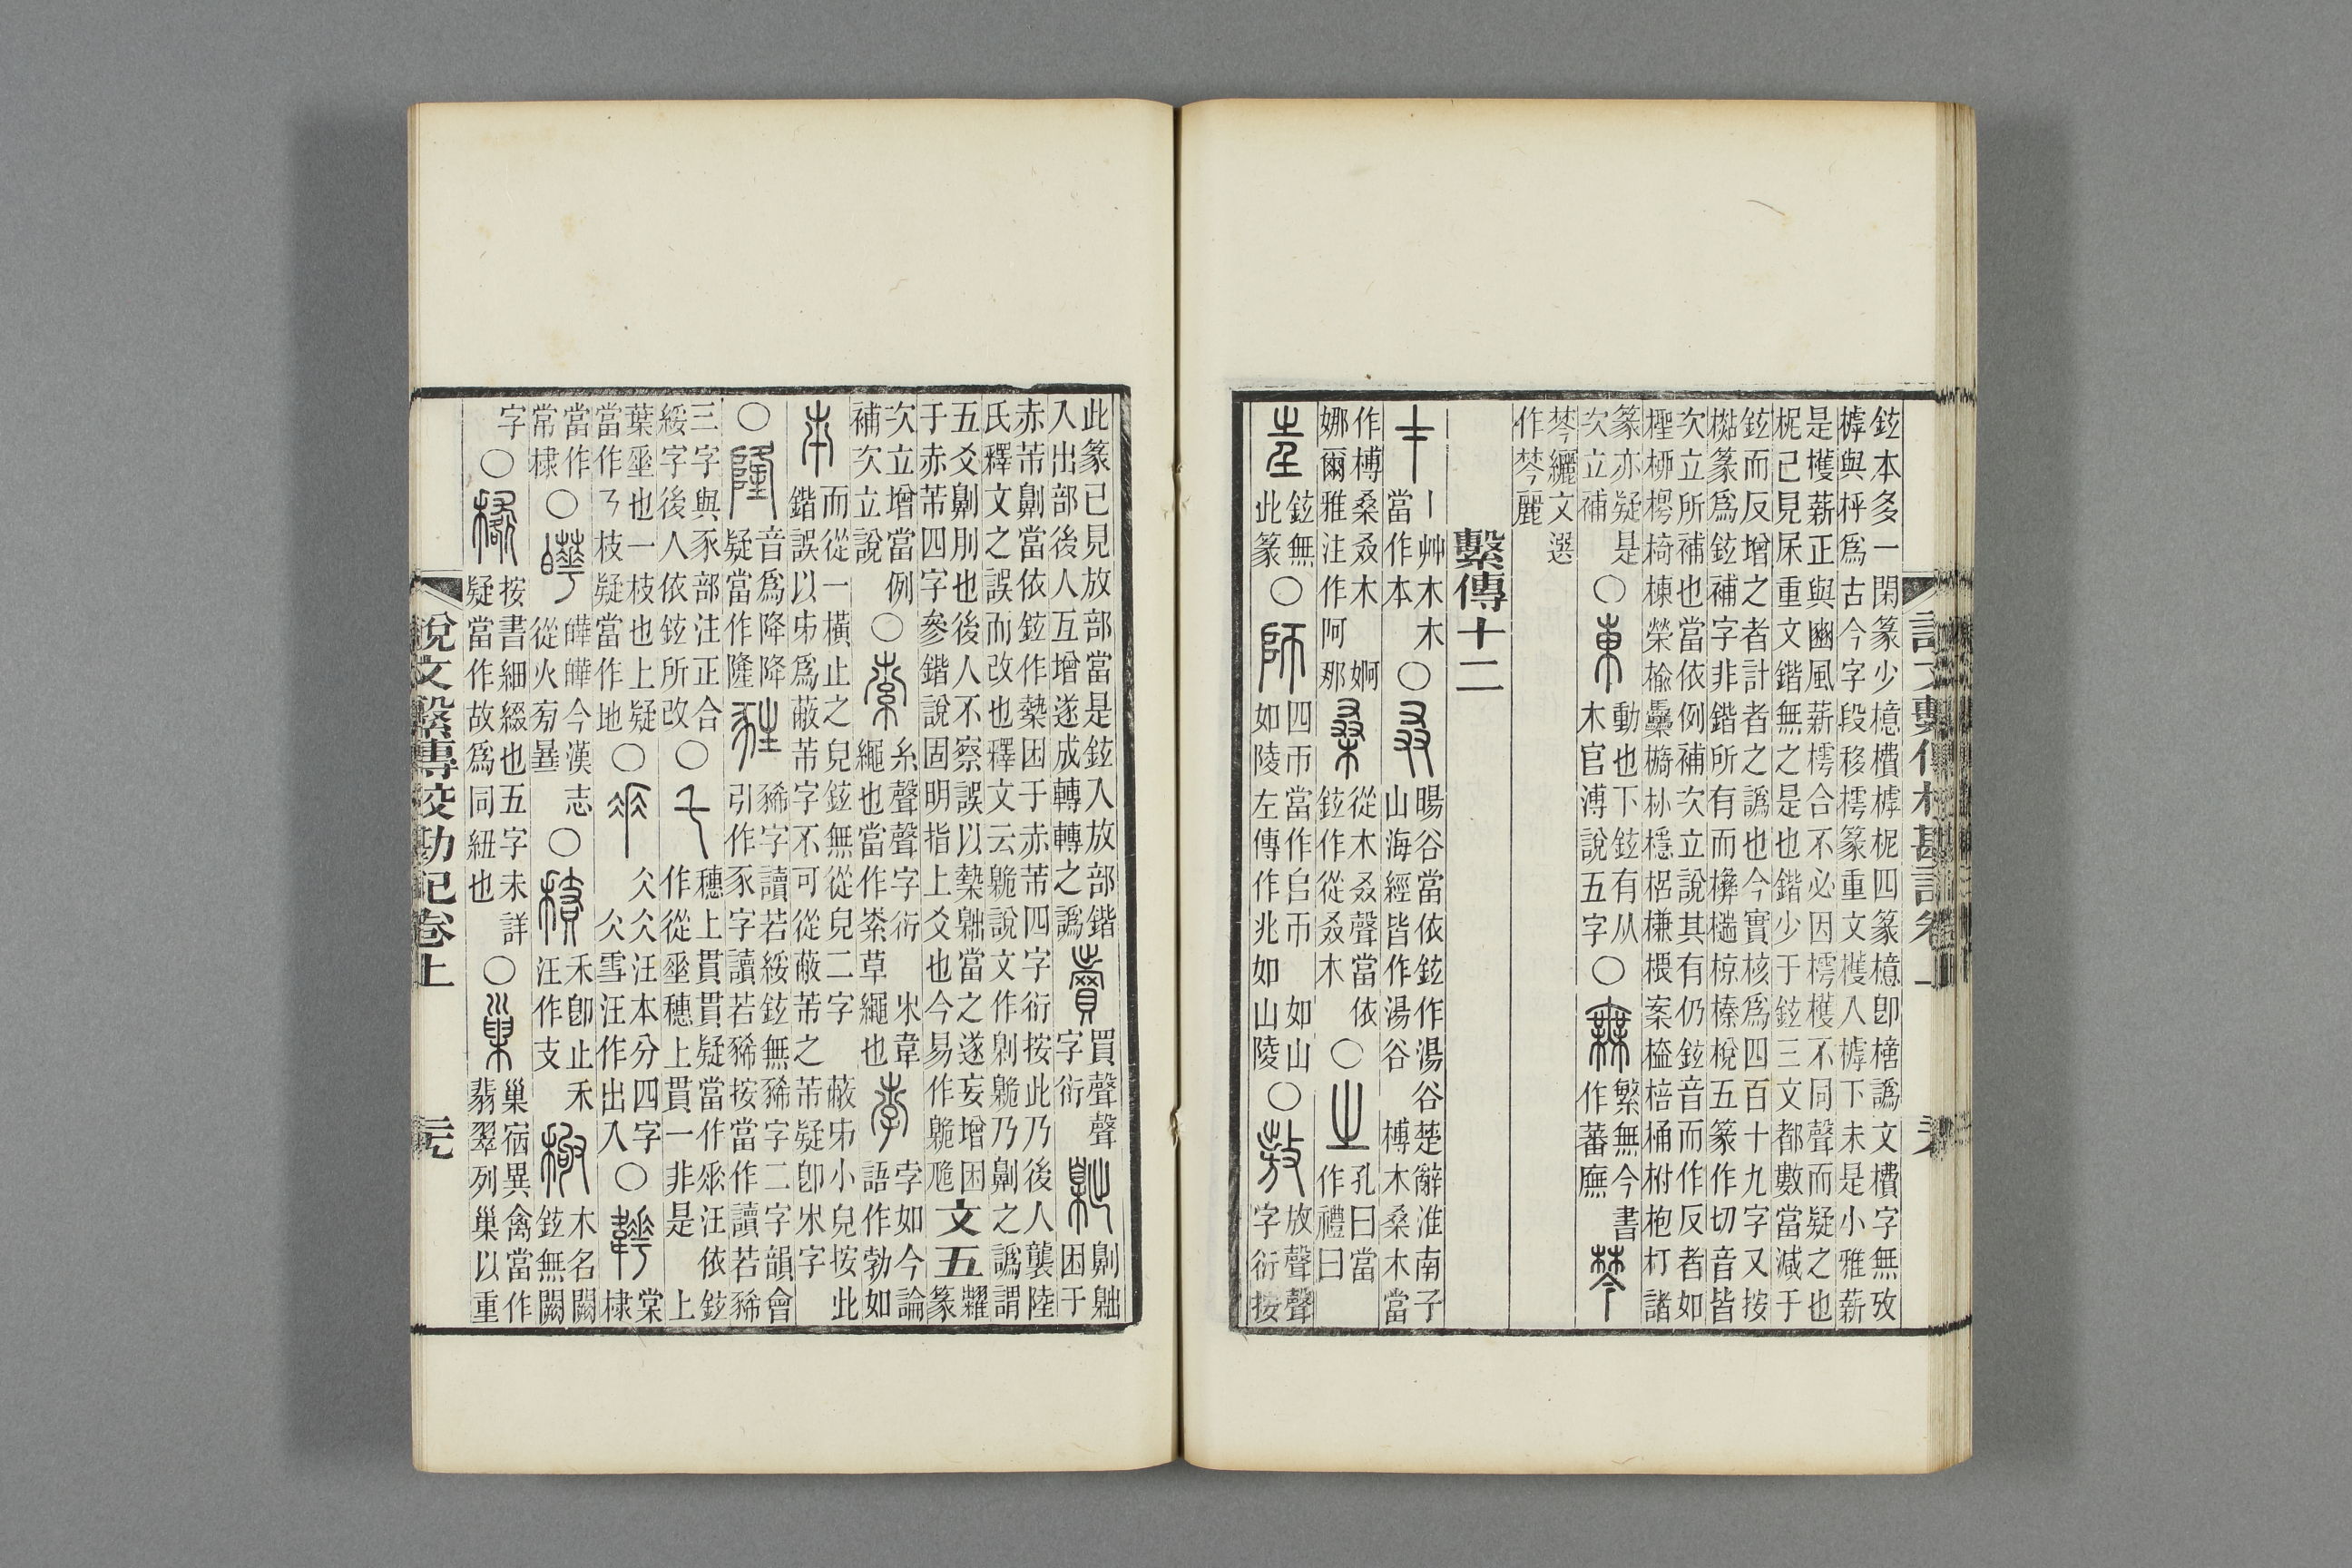 說文繫傳校勘記卷上
鉉本多一閑篆少檍櫝槔柅四篆檍卽楮譌文櫝字無攷
槔與枰爲古今字段移樗篆重文檴入槔下未是小雅薪
是檴薪正與豳風薪樗合不必因樗檴不同聲而疑之也
柅已見杘重文鍇無之是也鍇少于鉉三文都數當減于
鉉而反增之者計者之譌也今實核爲四百十九字又按
篆爲鉉補字非鍇所有而椋榛梲五篆作切音皆
次立所補也當依例補次立說其有仍鉉音而作反者如
檉栁樗椅棟榮榆欙檹朴檼梠槏椳案榼棓桶柎枹朾諸
篆亦疑是次立補○東動也下鉉有从木官溥說五字○無繁無今書作蕃廡棽
棽纚文選作棽麗
繫傳十二
才丨艸木木當作本○叒暘谷當依鉉作湯谷楚辭淮南子山海經皆作湯谷榑木桑木木當
作榑桑叒木婀娜爾雅注作阿那桑從木叒聲當依鉉作從叒木○之孔曰當作禮曰
㞷鉉無此篆○師四帀當作𠂤帀如山如陵左傳作兆如山陵○敖放聲聲字衍按
此篆已見放部當是鉉入放部鍇入出部後人互增遂成轉轉之譌賣買聲聲字衍𣎴劓𪓐困于
赤芾劓當依鉉作槷困于赤芾四字衍按此乃後人襲陸
氏釋文之誤而改也釋文云臲說文作剿臲乃劓之譌謂
五爻劓刖也後人不察誤以槷𪓐當之遂妄增困
于赤芾四字參鍇說固明指上爻也今易作臲卼文五糶篆
次立增當例補次立說○索糸聲聲字衍繩也當作紊草繩也宋韋孛孛如今論語作勃如
𣎵而從一橫止之兒鉉無從兒二字鍇誤以巿爲蔽芾字不可從蔽芾之芾疑卽宋字蔽巿小兒按此
○隆音爲降降疑當作隆㽔豨字讀若綏鉉無豨字二字韻會引作豕字讀若豨按當作讀若豨
三字與豕部注正合綏字後人依鉉所改○乇穗上貫貫疑當作𠂹汪依鉉作從𠂹穗上貫一非是上
葉𠂹也一枝也上疑當作㇋枝疑當作地○𠂹仌仌汪本分四字仌雪汪作出入○韡棠棣
當作常棣○曄皣皣今漢志從火㫄曅○𥠻禾卽止禾汪作支木名闕鉉無闕
字○按書細綴也五字未詳疑當作故爲同紐也○巢巢宿異禽當作翡翠列巢以重
說文繫傳校勘記卷上